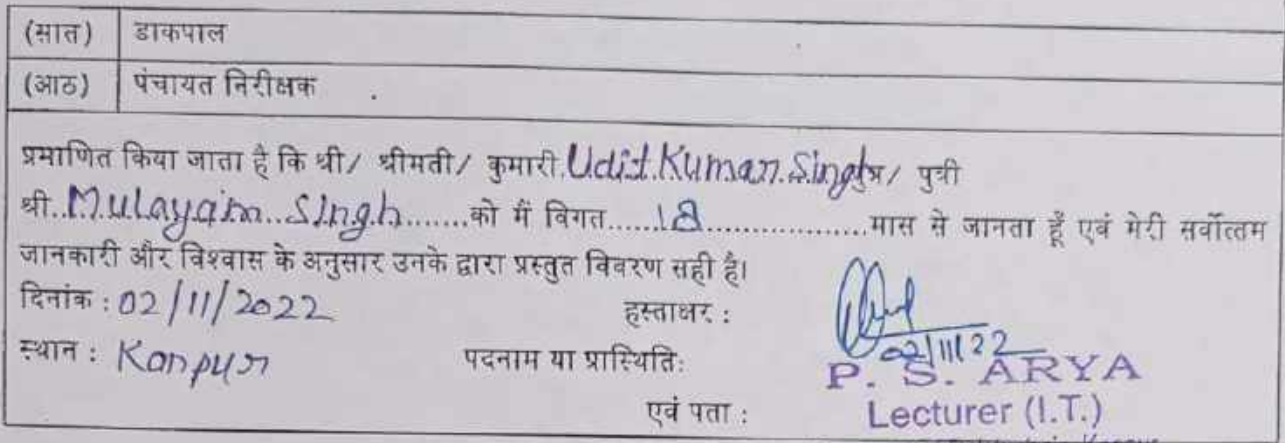 (सात) डाकपाल
(आठ) पंचायत निरीक्षक
प्रमाणित किया जाता है कि श्री/ श्रीमती/ कुमारी.Udit.Kumar.Singhपुत्र/ पुत्री
श्री..Mulayam..Singh.......को मैं विगत......18..................मास से जानता हूँ एवं मेरी सर्वोत्तम
जानकारी और विश्वास के अनुसार उनके द्वारा प्रस्तुत विवरण सही है।
दिनांक : 02/11/2022 हस्ताक्षर :
02/11/22
स्थान : Kanpur पदनाम या प्रास्थिति: P. S. ARYA
एवं पता : Lecturer (I.T.)